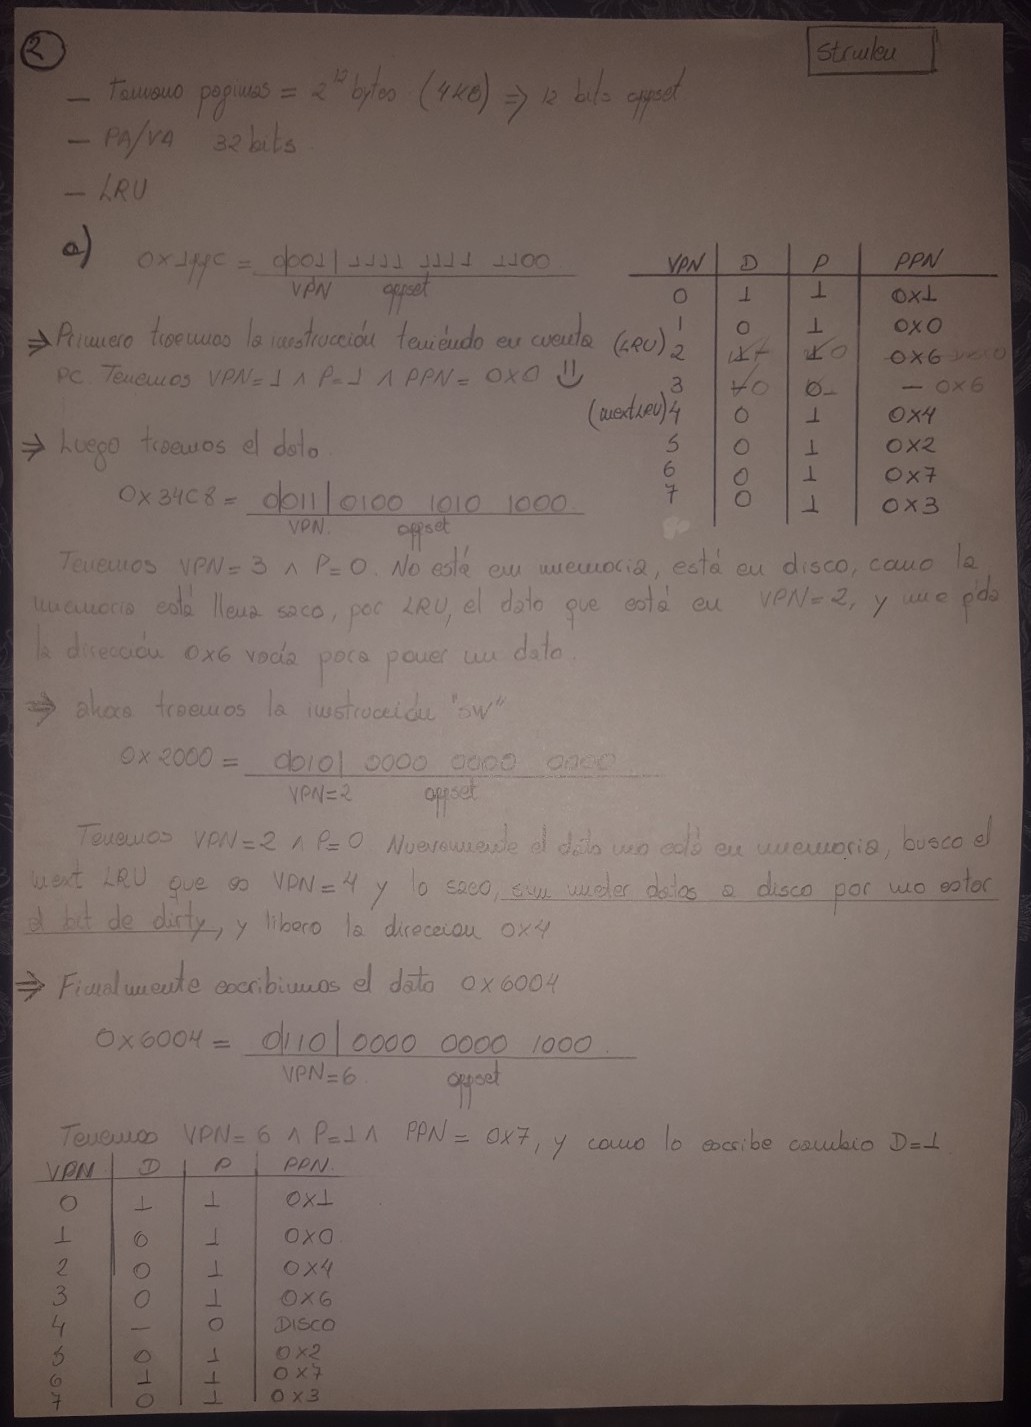 2
Strulen
— Tamano paginas = 2^12 bytes (4KB) ⇒ 12 bits offset
— PA/VA 32 bits.
— LRU
a) 0x1ffC = 0001 | 1111 1111 1100
VPN offset
⇒ Primero traemos la instrucción teniéndo en cuenta
PC. Tenemos VPN=1 ∧ P=1 ∧ PPN= 0x0
VPN D P PPN
0 1 1 0x1
1 0 1 0x0
(LRU) 2 0 0x6
3 0 0 — 0x6
(next LRU) 4 0 1 0x4
5 0 1 0x2
6 0 1 0x7
7 0 1 0x3
⇒ Luego traemos el dato.
0x34C8 = 0011 | 0100 1010 1000
VPN. offset
Tenemos VPN=3 ∧ P=0. No esté en memoria, está en disco, como la
memoria está llena saco, por LRU, el dato que está en VPN=2, y me
la dirección 0x6 vacía para poner un dato.
⇒ ahora traemos la instrucción "SW"
0x2000 = 0010 | 0000 0000 0000
VPN=2 offset
Tenemos VPN=2 ∧ P=0 Nuevamente el dato no está en memoria, busco el
next LRU que es VPN=4 y lo saco, sin meter datos a disco por no estar
el bit de dirty, y libero la direccion 0x4
⇒ Finalmente escribimos el dato 0x6004
0x6004 = 0110 | 0000 0000 1000.
VPN=6 offset
Tenemos VPN=6 ∧ P=1 ∧ PPN= 0x7, y como lo escribe cambio D=1
VPN D P PPN.
0 1 1 0x1
1 0 1 0x0
2 0 1 0x4
3 0 1 0x6
4 — 0 DISCO
5 0 1 0x2
6 1 1 0x7
7 0 1 0x3